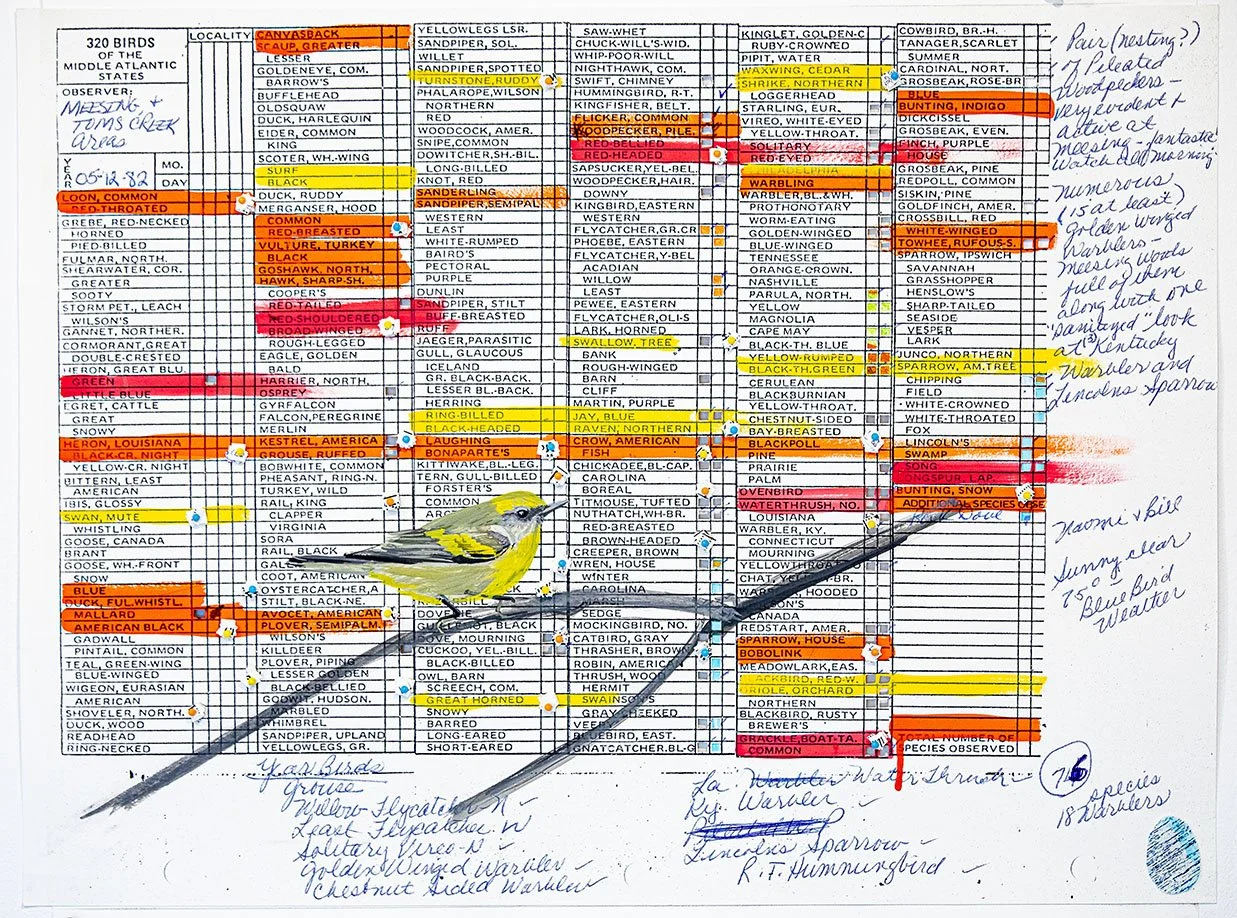 320 BIRDS
OF THE
MIDDLE ATLANTIC
STATES
OBSERVER:
MEESING +
TOMS CREEK
Areas
YEAR 05-12-82 MO. DAY
LOON, COMMON
RED-THROATED
GREBE, RED-NECKED
HORNED
PIED-BILLED
FULMAR, NORTH.
SHEARWATER, COR.
GREATER
SOOTY
STORM PET., LEACH
WILSON'S
GANNET, NORTHER.
CORMORANT, GREAT
DOUBLE-CRESTED
HERON, GREAT BLU.
GREEN
LITTLE BLUE
EGRET, CATTLE
GREAT
SNOWY
HERON, LOUISIANA
BLACK-CR. NIGHT
YELLOW-CR. NIGHT
BITTERN, LEAST
AMERICAN
IBIS, GLOSSY
SWAN, MUTE
WHISTLING
GOOSE, CANADA
BRANT
GOOSE, WH.-FRONT
SNOW
BLUE
DUCK, FUL.WHISTL.
MALLARD
AMERICAN BLACK
GADWALL
PINTAIL, COMMON
TEAL, GREEN-WING
BLUE-WINGED
WIGEON, EURASIAN
AMERICAN
SHOVELER, NORTH.
DUCK, WOOD
READHEAD
RING-NECKED
LOCALITY
CANVASBACK
SCAUP, GREATER
LESSER
GOLDENEYE, COM.
BARROW'S
BUFFLEHEAD
OLDSQUAW
DUCK, HARLEQUIN
EIDER, COMMON
KING
SCOTER, WH.-WING
SURF
BLACK
DUCK, RUDDY
MERGANSER, HOOD
COMMON
RED-BREASTED
VULTURE, TURKEY
BLACK
GOSHAWK, NORTH.
HAWK, SHARP-SH.
COOPER'S
RED-TAILED
RED-SHOULDERED
BROAD-WINGED
ROUGH-LEGGED
EAGLE, GOLDEN
BALD
HARRIER, NORTH.
OSPREY
GYRFALCON
FALCON, PEREGRINE
MERLIN
KESTREL, AMERICA
GROUSE, RUFFED
BOBWHITE, COMMON
PHEASANT, RING-N.
TURKEY, WILD
RAIL, KING
CLAPPER
VIRGINIA
SORA
RAIL, BLACK
COOT, AMERICAN
OYSTERCATCHER, A
STILT, BLACK-NE.
AVOCET, AMERICAN
PLOVER, SEMIPALM.
WILSON'S
KILLDEER
PLOVER, PIPING
LESSER GOLDEN
BLACK-BELLIED
GODWIT, HUDSON.
MARBLED
WHIMBREL
SANDPIPER, UPLAND
YELLOWLEGS, GR.
YELLOWLEGS LSR.
SANDPIPER, SOL.
WILLET
SANDPIPER, SPOTTED
TURNSTONE, RUDDY
PHALAROPE, WILSON
NORTHERN
RED
WOODCOCK, AMER.
SNIPE, COMMON
DOWITCHER, SH.-BIL.
LONG-BILLED
KNOT, RED
SANDERLING
SANDPIPER, SEMIPAL
WESTERN
LEAST
WHITE-RUMPED
BAIRD'S
PECTORAL
PURPLE
DUNLIN
SANDPIPER, STILT
BUFF-BREASTED
RUFF
JAEGER, PARASITIC
GULL, GLAUCOUS
ICELAND
GR. BLACK-BACK.
LESSER BL.-BACK.
HERRING
RING-BILLED
BLACK-HEADED
LAUGHING
BONAPARTE'S
KITTIWAKE, BL.-LEG.
FORSTER'S
COMMON
DOVE, MOURNING
CUCKOO, YEL.-BILL.
BLACK-BILLED
OWL, BARN
SCREECH, COM.
GREAT HORNED
SNOWY
BARRED
LONG-EARED
SHORT-EARED
SAW-WHET
CHUCK-WILL'S-WID.
WHIP-POOR-WILL
NIGHTHAWK, COM.
SWIFT, CHIMNEY
HUMMINGBIRD, R-T.
KINGFISHER, BELT.
FLICKER, COMMON
WOODPECKER, PILE.
RED-BELLIED
RED-HEADED
SAPSUCKER, YEL.-BEL.
WOODPECKER, HAIR.
DOWNY
KINGBIRD, EASTERN
WESTERN
FLYCATCHER, GR.CR
PHOEBE, EASTERN
FLYCATCHER, Y-BEL
ACADIAN
WILLOW
LEAST
PEWEE, EASTERN
FLYCATCHER, OLI-S
LARK, HORNED
SWALLOW, TREE
BANK
ROUGH-WINGED
BARN
CLIFF
MARTIN, PURPLE
JAY, BLUE
RAVEN, NORTHERN
CROW, AMERICAN
FISH
CHICKADEE, BL-CAP.
CAROLINA
BOREAL
TITMOUSE, TUFTED
NUTHATCH, WH-BR.
RED-BREASTED
BROWN-HEADED
CREEPER, BROWN
WREN, HOUSE
WINTER
CAROLINA
MARSH
SEDGE
MOCKINGBIRD, NO.
CATBIRD, GRAY
THRASHER, BROWN
ROBIN, AMERICAN
THRUSH, WOOD
HERMIT
SWAINSON'S
GRAY-CHEEKED
VEERY
BLUEBIRD, EAST.
GNATCATCHER, BL-G
KINGLET, GOLDEN-C
RUBY-CROWNED
PIPIT, WATER
WAXWING, CEDAR
SHRIKE, NORTHERN
LOGGERHEAD
STARLING, EUR.
VIREO, WHITE-EYED
YELLOW-THROAT.
SOLITARY
RED-EYED
PHILADELPHIA
WARBLING
WARBLER, BL.&WH.
PROTHONOTARY
WORM-EATING
GOLDEN-WINGED
BLUE-WINGED
TENNESSEE
ORANGE-CROWN.
NASHVILLE
PARULA, NORTH.
YELLOW
MAGNOLIA
CAPE MAY
BLACK-TH. BLUE
YELLOW-RUMPED
BLACK-TH.GREEN
CERULEAN
BLACKBURNIAN
YELLOW-THROAT.
CHESTNUT-SIDED
BAY-BREASTED
BLACKPOLL
PINE
PRAIRIE
PALM
OVENBIRD
WATERTHRUSH, NO.
LOUISIANA
WARBLER, KY.
CONNECTICUT
MOURNING
YELLOWTHROAT
CHAT, YEL.-BR.
HOODED
CANADA
REDSTART, AMER.
SPARROW, HOUSE
BOBOLINK
MEADOWLARK, EAS.
BLACKBIRD, RED-W.
ORIOLE, ORCHARD
NORTHERN
BLACKBIRD, RUSTY
BREWER'S
GRACKLE, BOAT-TA.
COMMON
COWBIRD, BR.-H.
TANAGER, SCARLET
SUMMER
CARDINAL, NORT.
GROSBEAK, ROSE-BR
BLUE
BUNTING, INDIGO
DICKCISSEL
GROSBEAK, EVEN.
FINCH, PURPLE
HOUSE
GROSBEAK, PINE
REDPOLL, COMMON
SISKIN, PINE
GOLDFINCH, AMER.
CROSSBILL, RED
WHITE-WINGED
TOWHEE, RUFOUS-S.
SPARROW, IPSWICH
SAVANNAH
GRASSHOPPER
HENSLOW'S
SHARP-TAILED
SEASIDE
VESPER
LARK
JUNCO, NORTHERN
SPARROW, AM.TREE
CHIPPING
FIELD
WHITE-CROWNED
WHITE-THROATED
FOX
LINCOLN'S
SWAMP
SONG
LONGSPUR, LAP.
BUNTING, SNOW
ADDITIONAL SPECIES OBSE
Rock Dove
TOTAL NUMBER OF
SPECIES OBSERVED
76
Pair (nesting?)
of Pileated
Woodpeckers -
very evident +
active at
Meesing - fantastic
Watch all morning
Numerous
(15 at least)
Golden Winged
Warblers -
Meesing woods
full of them
along with one
"damaged" look
at Kentucky
Warbler and
Lincolns Sparrow
Naomi + Bill
Sunny clear
75°
Blue Bird
Weather
species
18 Warblers
Year Birds
Grouse
Willow Flycatcher N -
Least Flycatcher N
Solitary Vireo - N -
Golden Winged Warbler -
Chestnut Sided Warbler
La. Warbler Water Thrush -
Ky. Warbler -
Lincolns Sparrow -
R. T. Hummingbird -